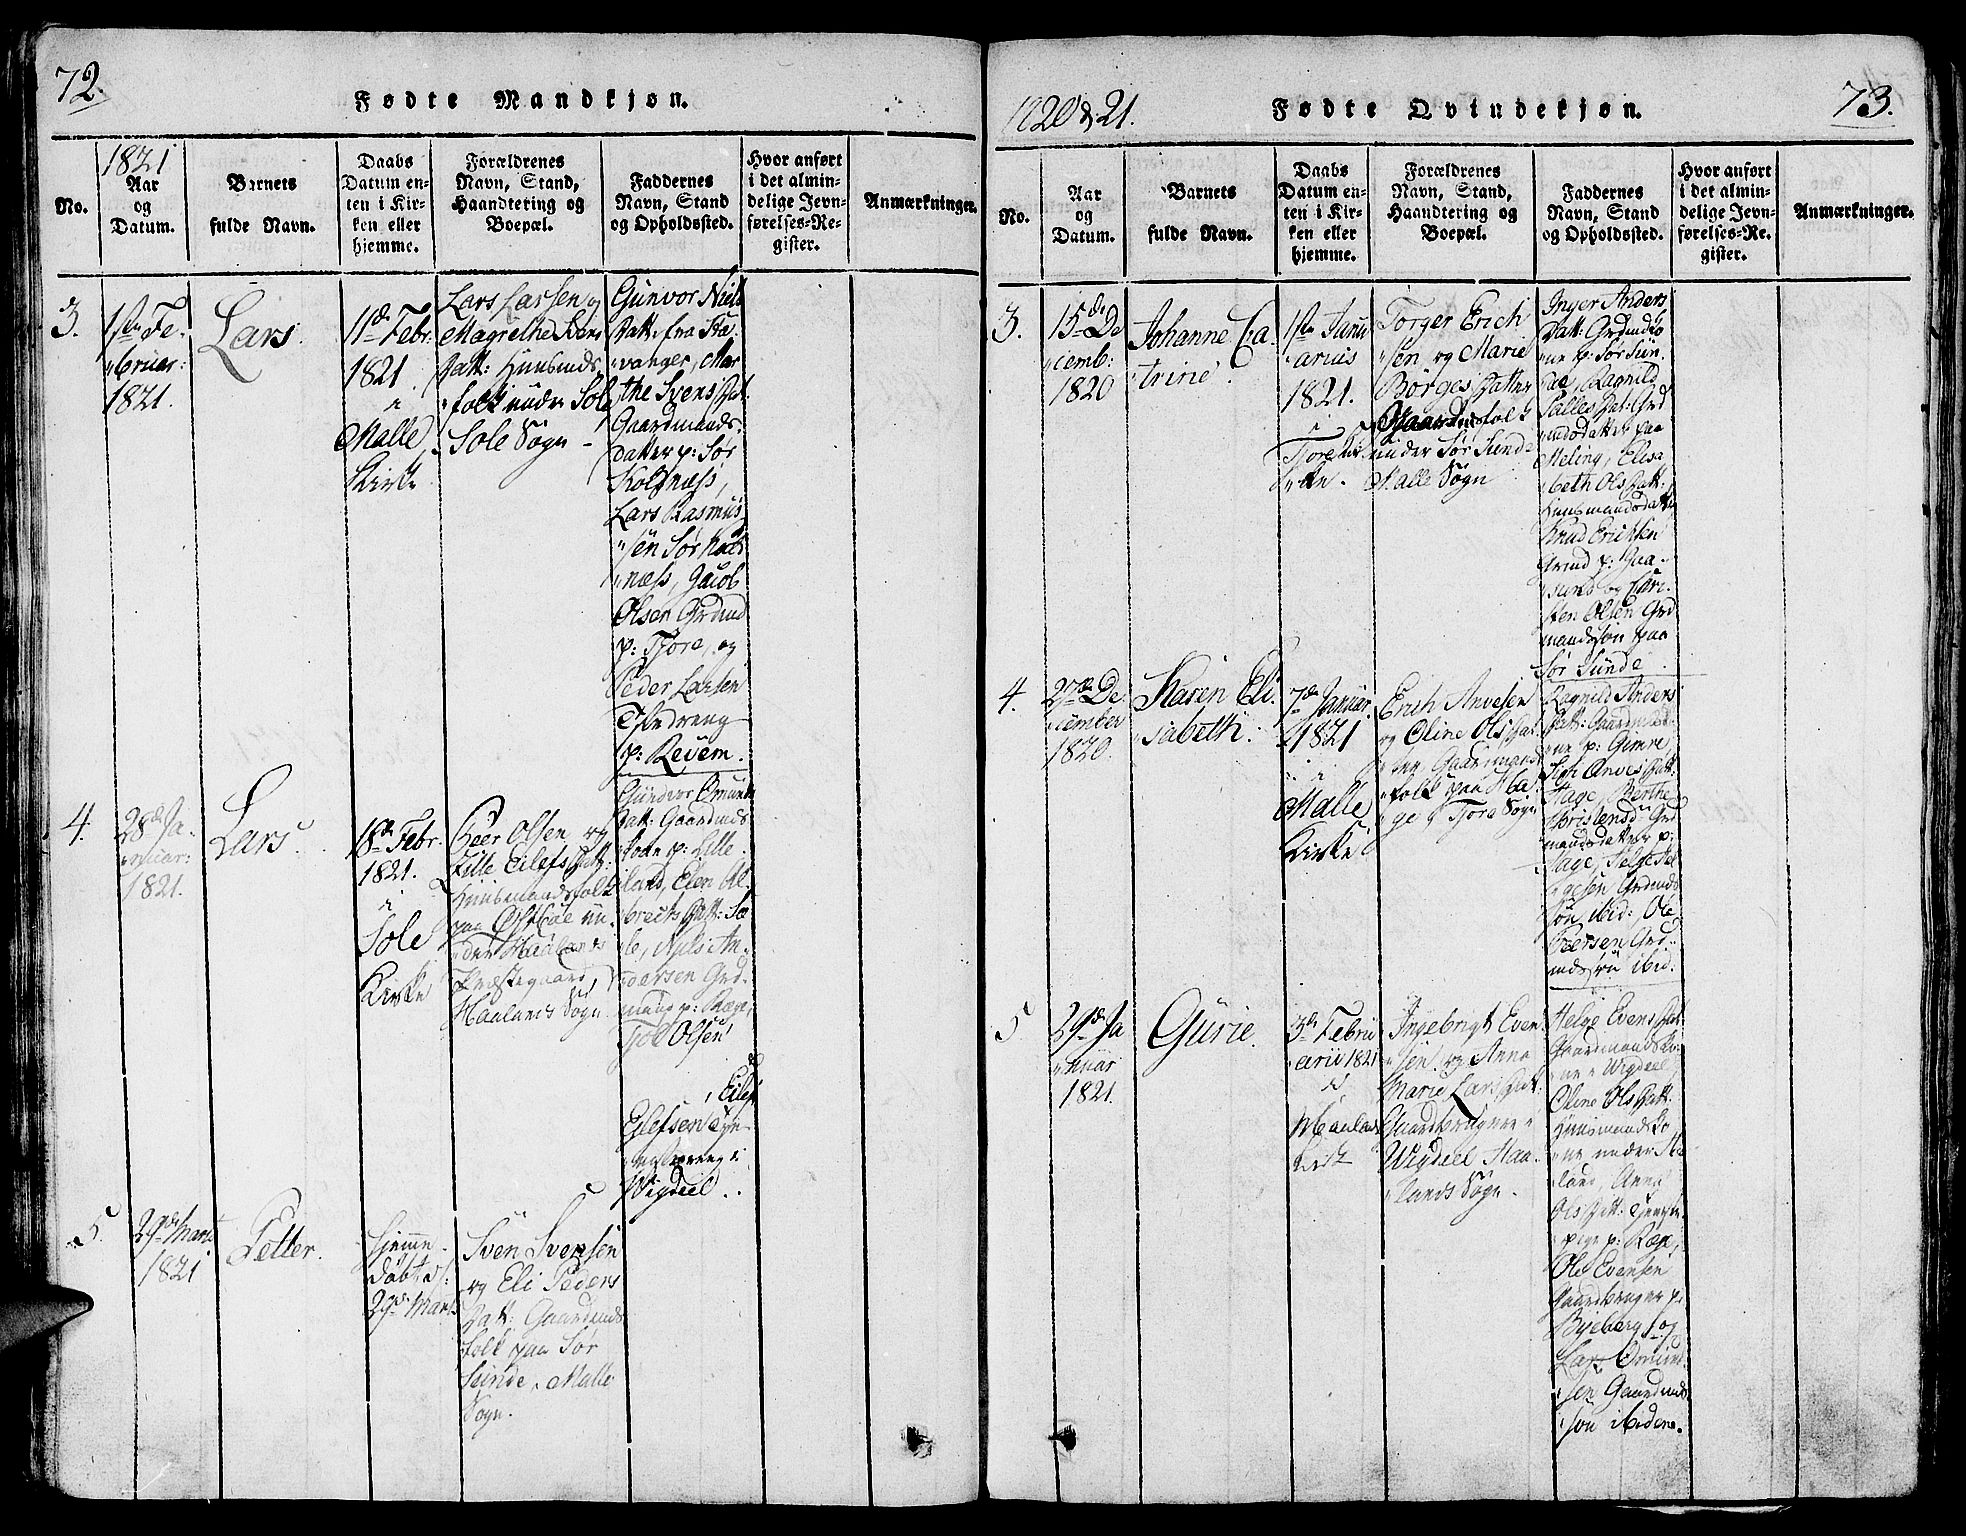 72.
Fødte Mandkjøn.
1821
No.
Aar
og
Datum.
Barnets
fulde Navn.
Daabs
Datum en-
ten i Kir-
ken eller
hjemme.
Forældrenes
Navn, Stand,
Haandtering og
Boepæl.
Faddernes
Navn, Stand
og Opholdssted.
Hvor anført
i det almin-
delige Jevn-
førelses-Re-
gister.
Anmærkninger.
3.
1ste Fe-
bruar:
1821.
Lars.
11de Febr:
1821
i
Malle
Kirke
Lars Larsen og
Magrethe
Datt: Huusmds
folk under Sole
Sole Sogn
Gunvor Niels
Datt: fra Sta-
vanger, Mar
the Svens Dat.
Gaardmands-
datter p: Sør
Kolsnæss,
Lars Rasmus
sen Sør Kols
næss, Jacob
Olsen Grdmd
p: Tjora, og
Peder Larsen
p: Revem.
4.
28de Ja-
nuar:
1821.
Lars.
18de Febr.
1821.
i
Sole
Kirke
Peer Olsen og
Zille Eilefs Datt:
Huusmandsfolk
paa Østbøe un-
der Haalands
Præstegaard,
Haalands Sogn
Gundvor Omunds
Datt: Gaardmds
kone p: Lille-
land, Elen Al-
brects Datt: So-
le, Niels An-
dersen Grd-
mand p: Ræge,
Olsen
Eilef
Eilefsen Tje-
nestedreng i
Wigdeel.
5.
29de Marts
1821
Petter.
Hjemme
døbt d:
29de Marts
Sven Svensen
og Eli Peders
Datt: Gaardmds
folk paa Sør
Sunde, Malle
Sogn.
1820 & 21.
Fødte Qvindekjøn.
73.
No.
Aar
og
Datum.
Barnets
fulde Navn.
Daabs
Datum en-
ten i Kir-
ken eller
hjemme.
Forældrenes
Navn, Stand,
Haandtering og
Boepæl.
Faddernes
Navn, Stand
og Opholdssted.
Hvor anført
i det almin-
delige Jevn-
førelses-Re-
gister.
Anmærkninger.
3.
15de De
cemb:
1820
Johanne Ca
trine.
1ste Janu
arius
1821.
i
Tjora Kir
ke.
Torger Erich
sen og Marie
Børges Datter
Gaardmdsfolk
under Sør Sunde
Malle Sogn
Inger Anders
Datt: Grdmdko
ne p: Sør Sun
de, Ragnild
Salles Dat: Grd
mdsdatter paa
Meling, Elisa
beth Ols Datt:
Huusmandsdatt
Knud Erichsen
p: Raa-
sund og Cari-
sten Olsen Grd
mandssøn paa
Sør Sunde
4.
27de De
cember
1820.
Karen Eli
sabeth.
7de Januar.
1821
i
Malle
Kirke
Erich Anvesen
og Oline Ols Dat
ter Gaardmands
folk paa Ha
ge, Tjora Sogn
Ragnild Anders
Datt: Gaardmdsko
ne p: Gimre,
Siri Anves Datt:
Hage, Berthe
Christensd: Grd
mandsdatter p:
Hage, Helge Hel
gesen Grdmds
søn ibid:, Ole
Peersen Grd-
mdssøn ibid.
5
29de Ja
nuar
1821.
Gurie.
3de Febru
arii 1821
i
Haalands
Kirke
Ingebrigt Even
sen og Anna
Marie Lars Dat.
Gaardbrugere i
Wigdeel Haa-
lands Sogn.
Helge Evens Dat.
Gaardmandsko-
ne i Wigdeel,
Oline Ols Datt:
Huusmandsko
ne under Ha
land, Anna
Ols Datt: Tjeneste
pige p: Ræge,
Ole Evensen
Gaardbruger p:
Byeberg, og
Lars Omund-
sen Gaardmds
søn ibidem.